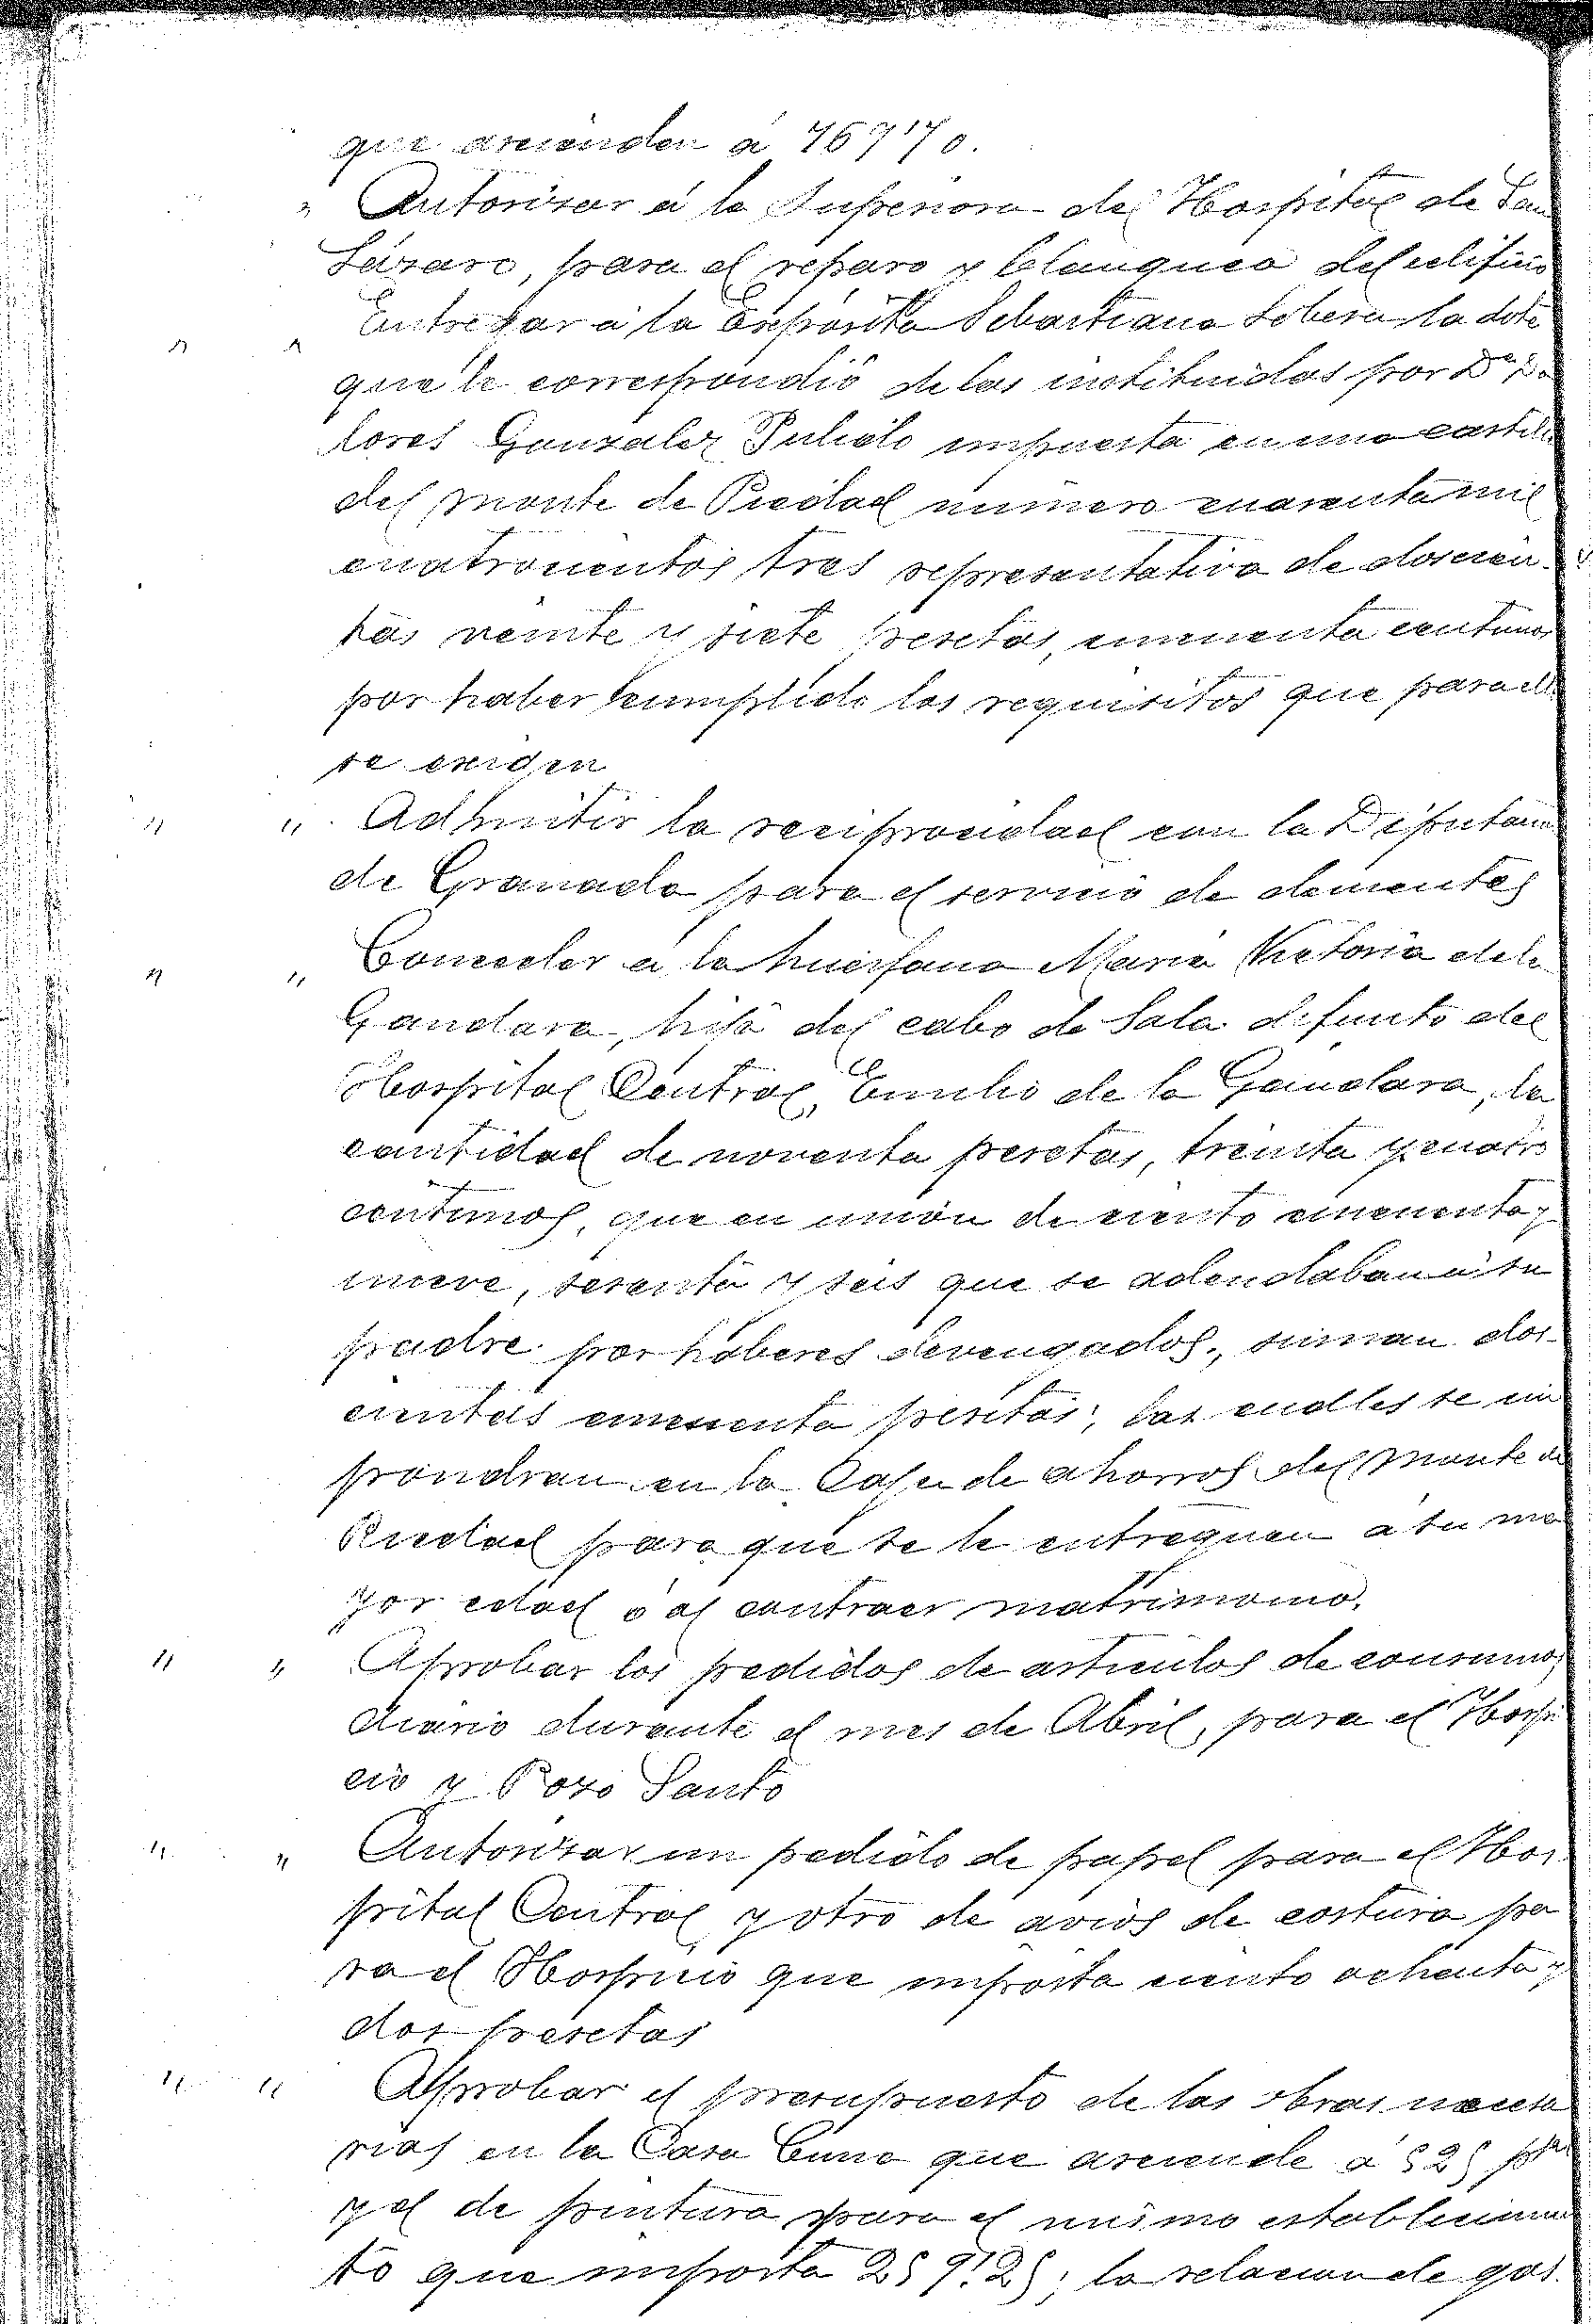 que ascienden á 767'70.
" Autorizar á la Superiora del Hospital de San
Lázaro, para el reparo y blanqueo del edificio
" " Entregar á la Expósita Sebastiana Lobera la dote
que le correspondió de las instituidas por Dª Do
lores Gonzalez Pulido impuesta en una cartilla
del Monte de Piedad número cuarenta mil
cuatrocientos tres representativa de doscien-
tas veinte y siete pesetas, cincuenta centimos
por haber cumplido los requisitos que para ello
se exigen
" " Admitir la reciprocidad con la Diputación
de Granada para el servicio de dementes
" " Conceder á la huerfana Maria Victoria de la
Gandara, hija del cabo de Sala difunto del
Hospital Central, Emilio de la Gandara, la
cantidad de noventa pesetas, treinta y cuatro
centimos, que en unión de ciento cincuenta y
nueve, sesenta y seis que se adeudaban á su
padre por haberes devengados, suman dos-
cientas cincuenta pesetas, las cualles se im
pondran en la Caja de ahorros del Monte de
Piedad para que se le entreguen á su ma
yor edad ó al contraer matrimonio.
" " Aprobar los pedidos de articulos de consumos
diario durante el mes de Abril, para el Hospi
cio y Pozo Santo
" " Autorizar un pedido de papel para el Hos-
pital Central y otro de avios de costura pa
ra el Hospicio que importa ciento ochenta y
dos pesetas
" " Aprobar el presupuesto de las obras necesa
rias en la Casa Cuna que asciende á 525 ptas
y el de pintura para el mismo establecimien
to que importa 259'25; la relacion de gas-